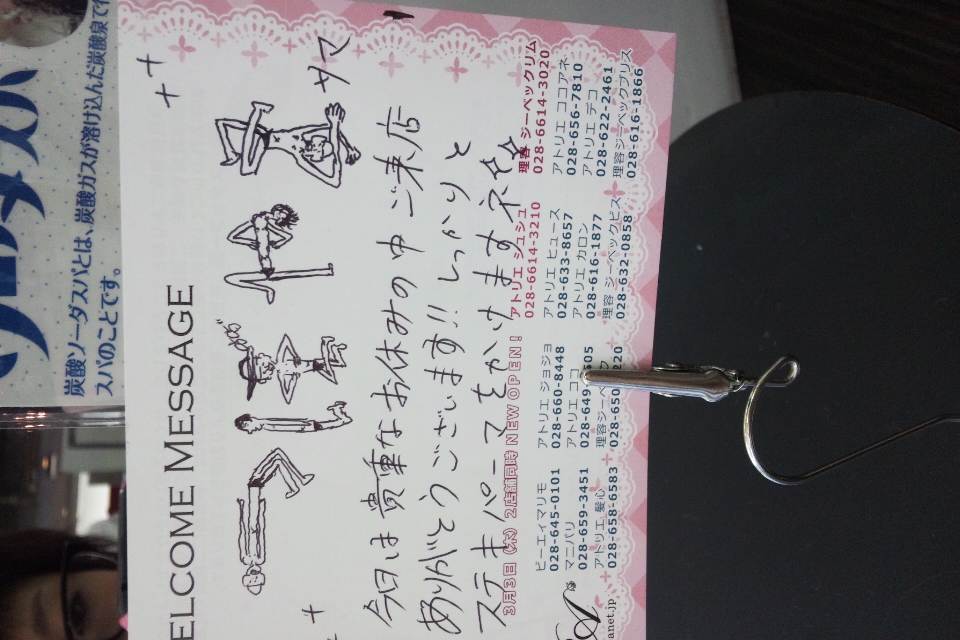 炭酸ソーダスパとは、炭酸ガスが溶け込んだ炭酸泉で
スパのことです。
ELCOME MESSAGE
サマ
今日は貴重なお休みの中ご来店
ありがとうございます!! しっかりと
ステキパーマをかけますネ☆☆
3月3日(木) 2店舗同時 NEW OPEN!
アトリエ シュシュ
028-6614-3210
理容 ジーベックリム
028-6614-3020
ビーエィマリモ
028-645-0101
アトリエ ジョジョ
028-660-8448
アトリエ ヒューズ
028-633-8657
アトリエ ココアネ
028-656-7810
マニパリ
028-659-3451
アトリエ ココ
028-649-
アトリエ カロン
028-616-1877
アトリエ デコ
028-622-2461
アトリエ 髪心
028-658-6583
理容ジーベック
028-650-
理容 ジーベックビス
028-632-0858
理容ジーベックプリス
028-616-1866
anet.jp